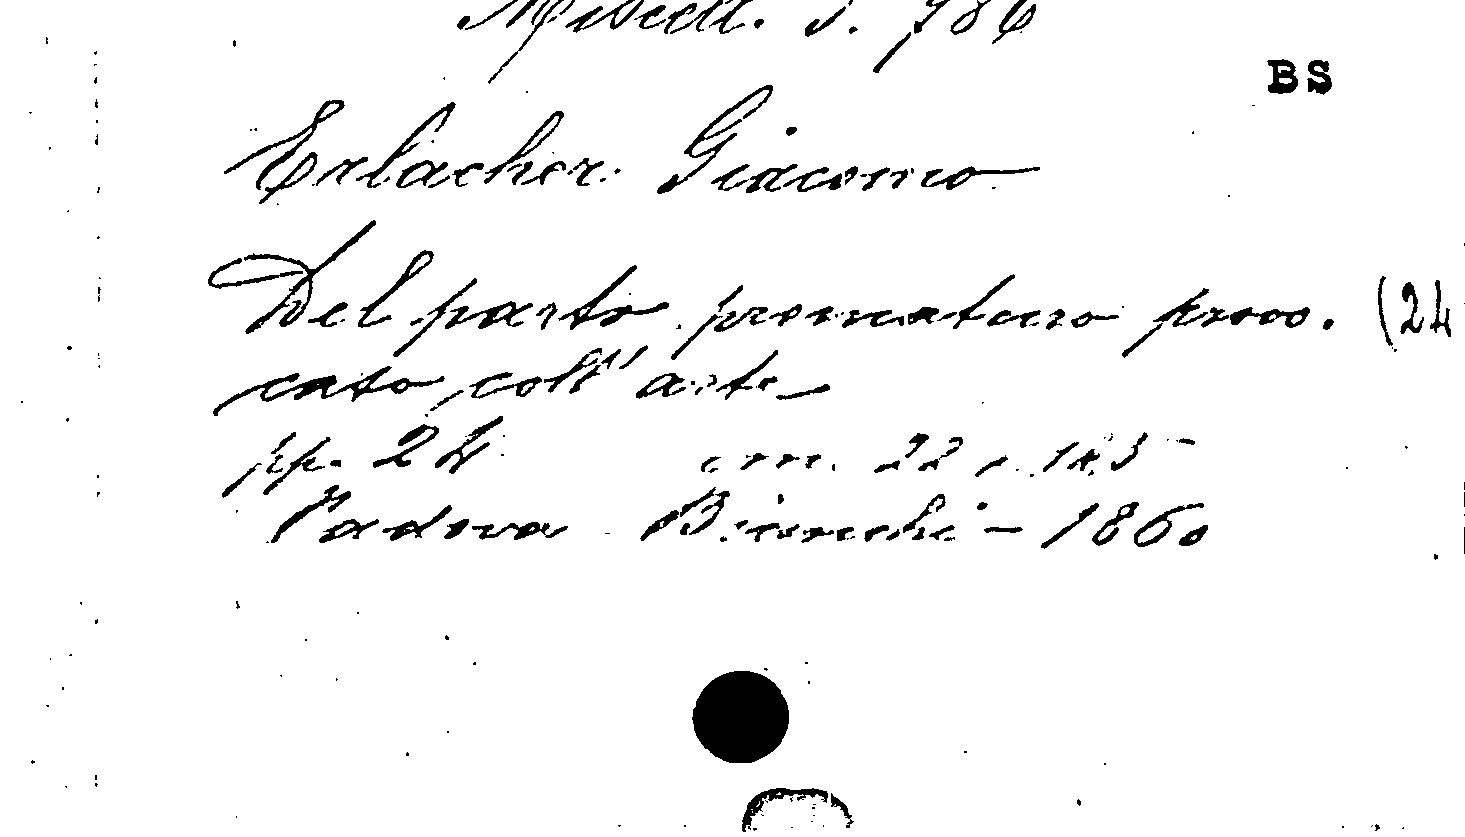 Miscell. S. 786
BS
Erlacher Giacomo
Del parto prematuro provo. (24
cato coll' arte
pp. 24 cm. 22 x 14,5
Padova Bianchi - 1860